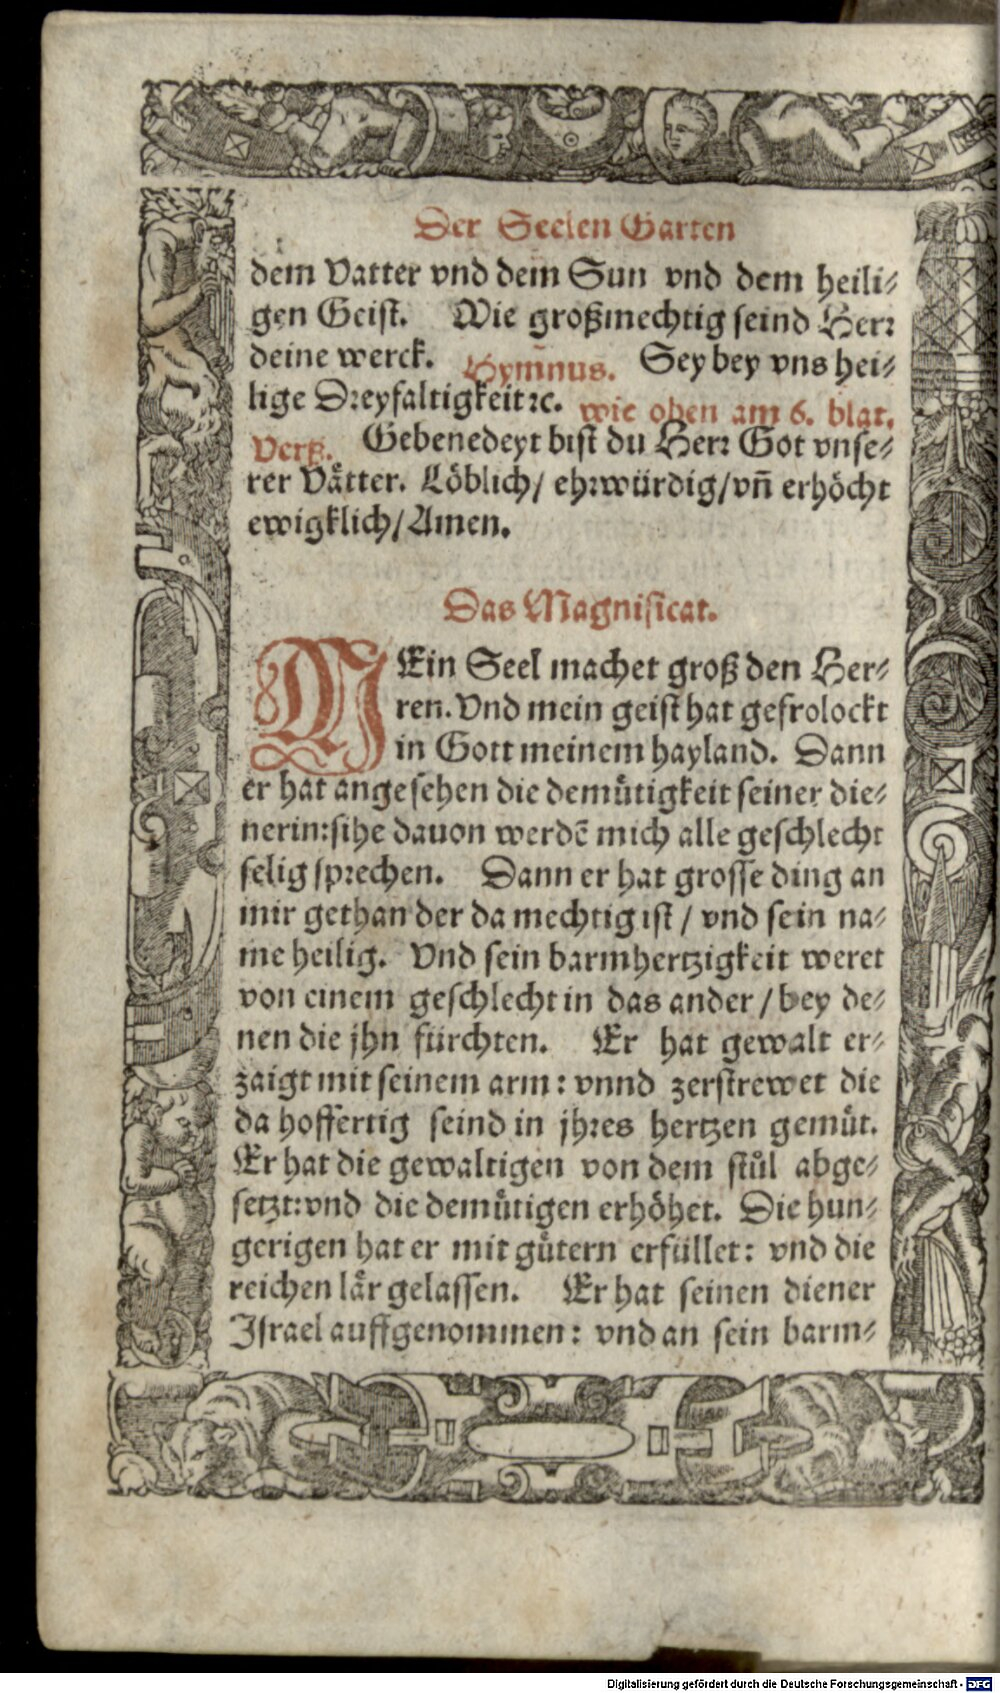 Der Seelen Garten
dem Vatter vnd dem Sun vnd dem heili⸗
gen Geist. Wie großmechtig seind Herr
deine werck. Hym̃nus. Sey bey vns hei⸗
lige Dreyfaltigkeit ꝛc. wie oben am 6. blat.
Verß. Gebenedeyt bist du Herr Got vnse⸗
rer Våtter. Löblich/ ehrwürdig/ vñ erhöcht
ewigklich/ Amen.
Das Magnificat.
MEin Seel machet groß den Her⸗
ren. Vnd mein geist hat gefrolockt
in Gott meinem hayland. Dann
er hat angesehen die demůtigkeit seiner die⸗
nerin: sihe dauon werdẽ mich alle geschlecht
selig sprechen. Dann er hat grosse ding an
mir gethan der da mechtig ist / vnd sein na⸗
me heilig. Vnd sein barmhertzigkeit weret
von einem geschlecht in das ander / bey de⸗
nen die jhn fürchten. Er hat gewalt er⸗
zaigt mit seinem arm: vnnd zerstrewet die
da hoffertig seind in jhres hertzen gemůt.
Er hat die gewaltigen von dem stůl abge⸗
setzt: vnd die demůtigen erhöhet. Die hun⸗
gerigen hat er mit gůtern erfüllet: vnd die
reichen lår gelassen. Er hat seinen diener
Israel auffgenommen: vnd an sein barm⸗
Digitalisierung gefördert durch die Deutsche Forschungsgemeinschaft - DFG